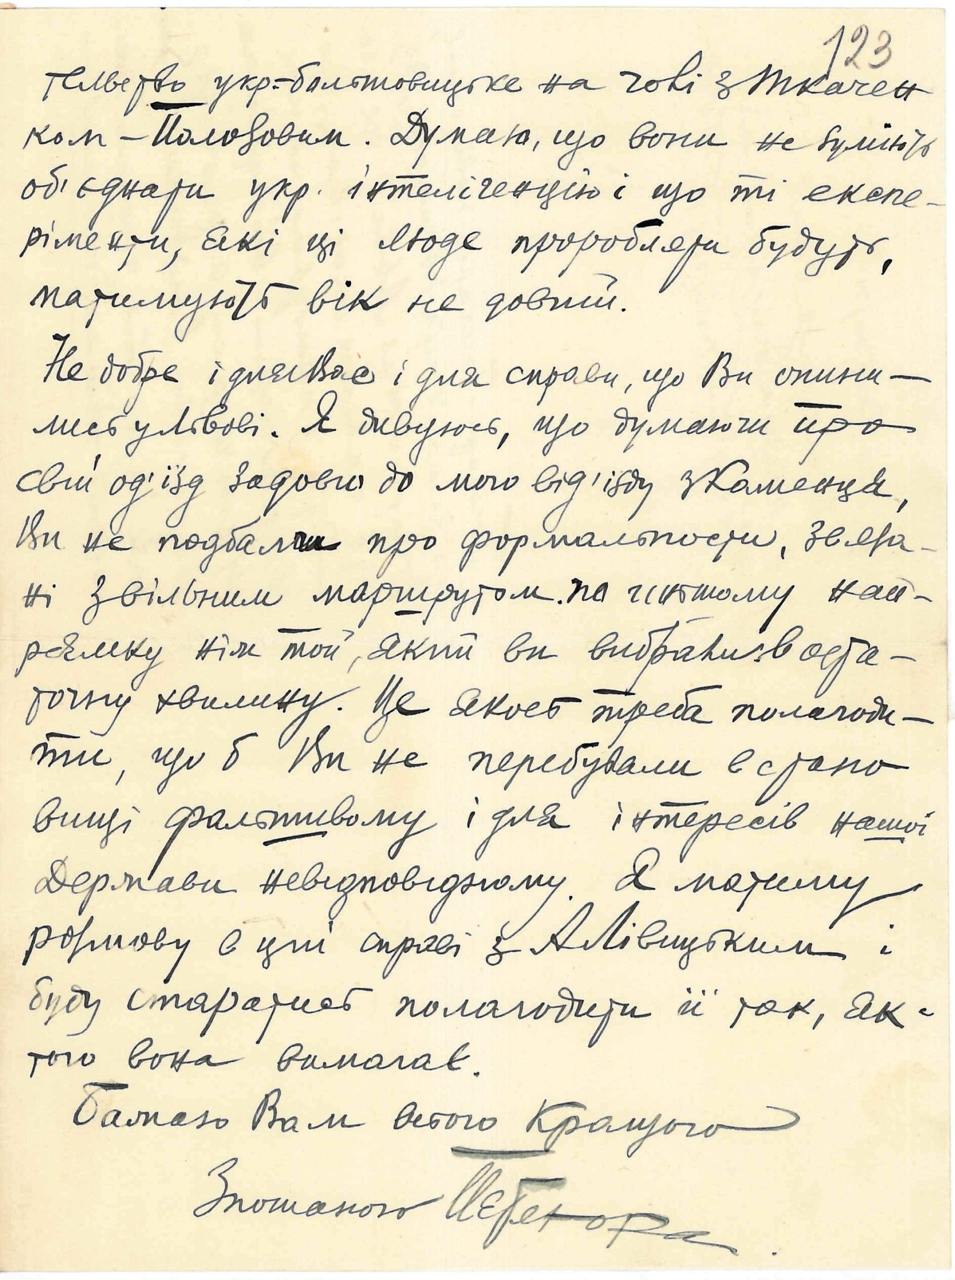 123
тельство укр-большовицьке на чолі з Ткачен
ком – Полозовим. Думаю, що вони не зуміють
об'єднати укр. інтелігенцію і що ті експе-
ріменти, які ці люде проробляти будуть,
матимують вік не довгий.
Не добре і для Вас і для справи, що Ви опини-
лись у Львові. Я дивуюсь, що думаючи про
свій од'їзд задовго до мого від'їзду з Каменця,
Ви не подбали про формальности, звяза-
ні з вільним маршрутом по иншому нап-
рямку ніж той, який ви вибрали в оста-
точну хвилину. Це якось треба полагоди-
ти, що б Ви не перебували в стано
вищі фальшивому і для інтересів нашої
Держави невідповідному. Я матиму
розмову в цій справі з А Лівицьким і
буду старатись полагодити її так, як
того вона вимагає.
Бажаю Вам всього Кращого
З пошаною